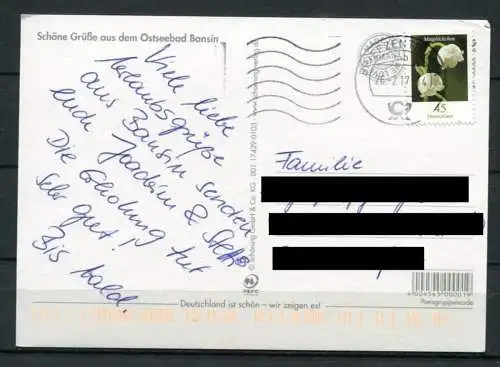 Schöne Grüße aus dem Ostseebad Bansin
Viele liebe
Urlaubsgrüße
aus Bansin senden
euch Joachim & Steff
Die Erholung tut
sehr gut!
Bis bald
Maiglöckchen
45
Deutschland
Familie
© Schöning GmbH & Co. KG · 001 17429 0103
PEFC
4 004545 000019
Postgruppencode
Deutschland ist schön – wir zeigen es!